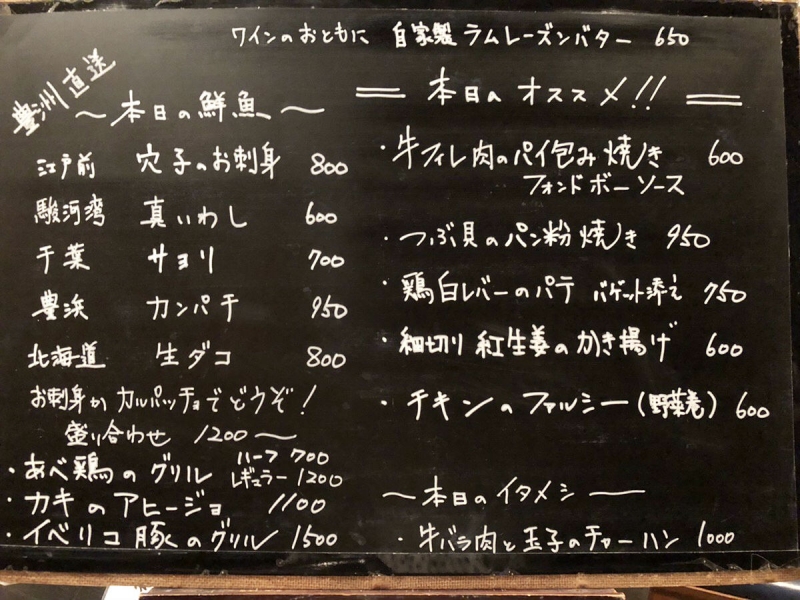 ワインのおともに 自家製 ラムレーズンバター 650
豊洲直送
〜本日の鮮魚〜
江戸前 穴子のお刺身 800
駿河湾 真いわし 600
千葉 サヨリ 700
豊浜 カンパチ 950
北海道 生ダコ 800
お刺身かカルパッチョでどうぞ!
盛り合わせ 1200〜
・あべ鶏のグリル ハーフ 700
レギュラー 1200
・カキのアヒージョ 1100
・イベリコ豚のグリル 1500
本日のオススメ!!
・牛フィレ肉のパイ包み焼き 600
フォンドボーソース
・つぶ貝のパン粉焼き 950
・鶏白レバーのパテ バゲット添え 750
・細切り紅生姜のかき揚げ 600
・チキンのファルシー(野菜巻) 600
〜本日のイタメシ〜
・牛バラ肉と玉子のチャーハン 1000